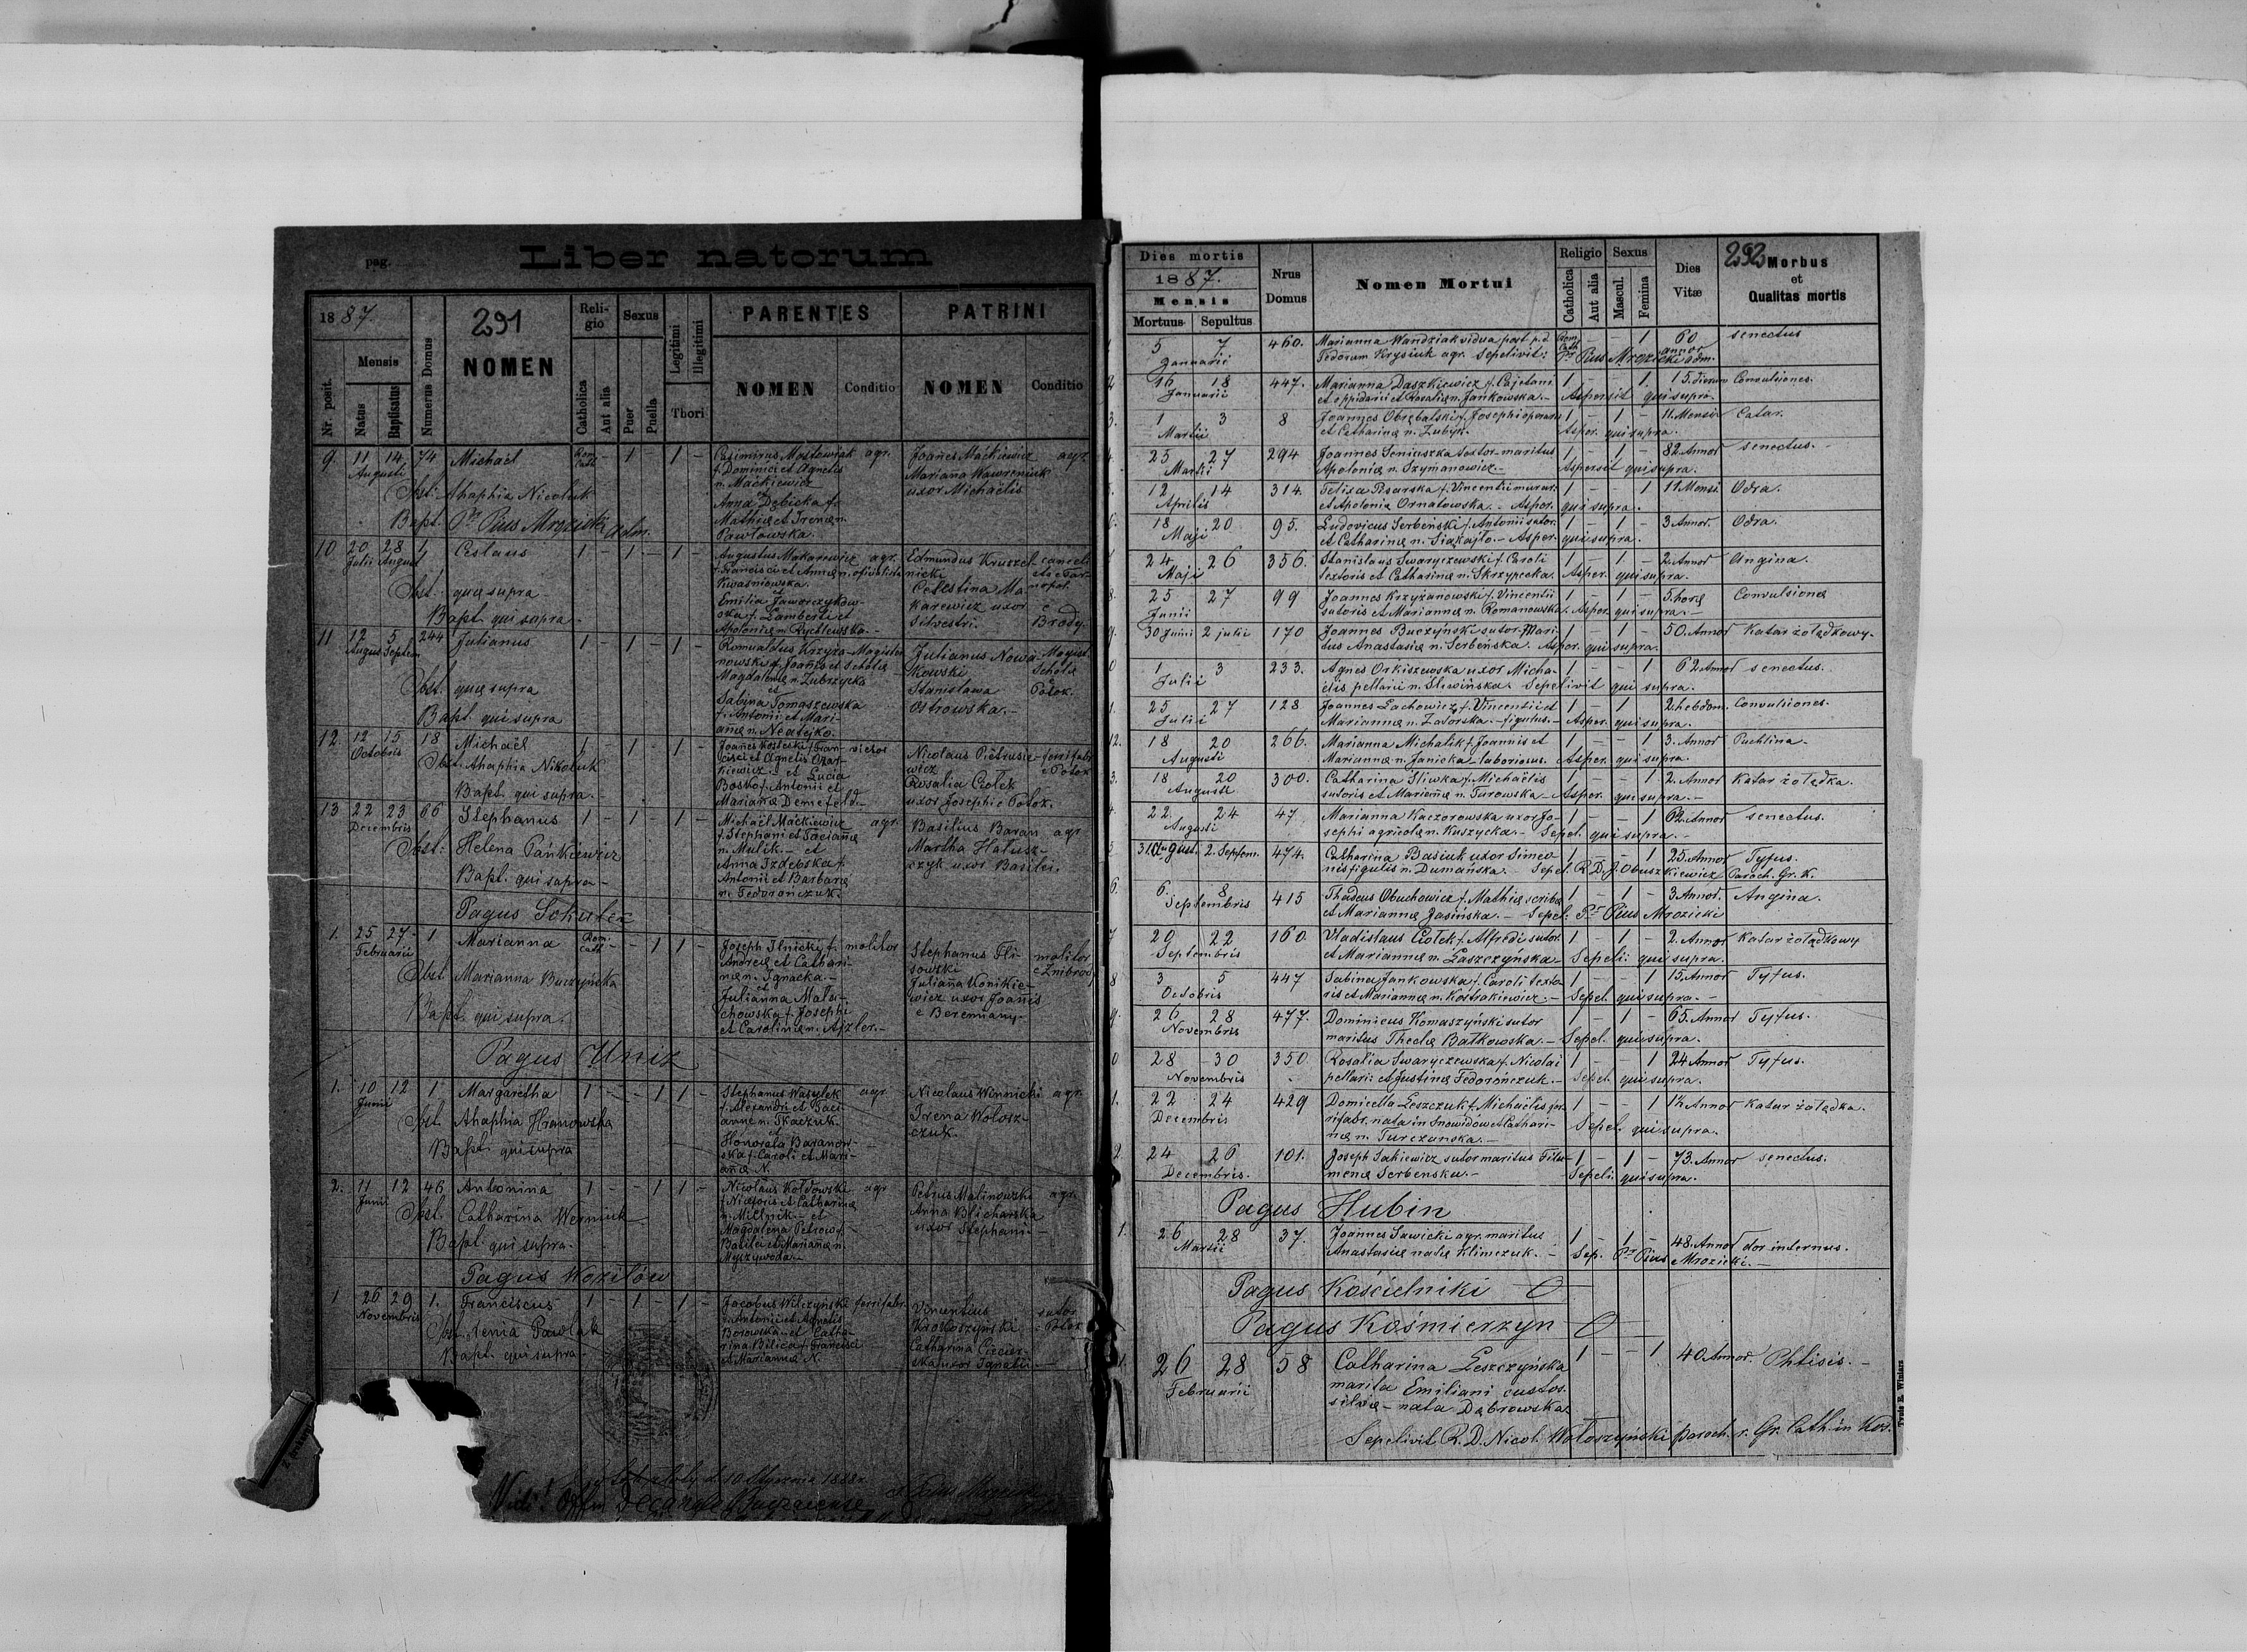 pag.
Liber natorum
1887.
291
NOMEN
Religio
Sexus
Legitimi
Illegitimi
Thori
PARENTES
PATRINI
Nr. posit.
Mensis
Natus
Baptisatus
Numerus Domus
Catholica
Aut alia
Puer
Puella
NOMEN
Conditio
NOMEN
Conditio
9. 11 14 74 Michaël Rom. Cath. - 1 - 1 - Casimirus Mostowiak agr. Joañes Maćkiewicz agr.
Augusti f. Dominici et Agnetis Mariana Wawreniuk
n. Maćkiewicz uxor Michaëlis
Obst: Ahaphia Nicoluk et
Anna Dębicka f.
Bapt. Pr Pius Mrozicki adm. Mathiæ et Irenæ n.
Pawłowska.
10 20 28 1 Ceslaus 1 - 1 - 1 - Augustus Makarewicz agr. Edmundus Kruszel- cancel.
Julii August f. Francisci et Annæ n. nicki
Kwaśniowska. Celestina Ma-
Obst: quæ supra et karewicz uxor
Emilia Jaworczykow- Silvestri. Brody.
Bapt. qui supra. ska f. Lamberti et
Apoloniæ n. Rychlewska.
11 12 5 244 Julianus 1 - 1 - 1 - Romualdus Krzyża- Magister Julianus Nowa- Magist.
Augus Septem nowski f. Joañis et Scholæ kowski Scholæ
Magdalenæ n. Zubrzycka Stanisława Potok.
Obst. quæ supra et Ostrowska.
Sabina Tomaszewska
Bapt. qui supra f. Antonii et Mari-
añæ n.
12. 12 15 18 Michaël 1 - 1 - 1 - Joañes Kostecki f. Fran- Nicolaus Pietrusie- ferrifabr
Octobris cisci et Agnetis wicz e Potok
Obst. Ahaphia Nikoluk kiewicz. et Lucia Rosalia Ciołek
Bosko f. Antonii et uxor Josephi e Potok.
Bapt. qui supra. Mariañæ
13 22 23 66 Stephanus 1 - 1 - 1 - Michaël Maćkiewicz agr. Basilius Baran agr
Decembris f. Stephani et Taciañæ Martha Halusz-
Obst: Helena Pańkiewicz n. Mulik. et czyk uxor Basilii.
Anna Izdebska f.
Bapt. qui supra Antonii et Barbaræ
n. Fedorończuk.
Pagus Sokulec
1. 25 27 1 Marianna Rom. cath - - 1 1 - Joseph Ilnicki f. molitor Stephanus Fli- molitor
Februarii Andreæ et Cathari- sowski e Znibrody
næ n. Ignacka. Juliana Konikie-
Obst Marianna Buczyńska et wicz uxor Joañis
Julianna Mała- e Beremiany.
Bapt. qui supra. chowska f. Josephi
et Carolinæ n. Ajzler.
Pagus Uniz
1. 10 12 1 Margaretha 1 - - 1 1 - Stephanus Wasylek agr. Nicolaus Winnicki agr.
Junii f. Alexandri et Taci- Irena Wołosz-
Obst Ahaphia Hranowska anæ n. Tkaczuk. czuk.
et
Bapt. qui supra Honorata Baranow-
ska f. Caroli et Mari-
añæ N.
2. 11 12 46 Antonina 1 - - 1 1 - Nicolaus Kołdowski agr Petrus Malinowski agr.
Junii f. Nictoris et Catharinæ Anna Blicharska
Obst. Catharina Werniuk n. Mielnik. et uxor Stephani
Magdalena Petrow f.
Bapt qui supra. Basilii et Mariañæ n.
Myczywoda.
Pagus Woziłów
1 26 29 1. Franciscus 1 - 1 - 1 - Jacobus Wilczyński ferrifabr. Vincentius sutor
Novembris f. Antonii et Agnetis Krokoszyński e Potok
Obst. Xenia Pawlak Borowska et Catha- Catharina
rina Bilica f. Francisci uxor Ignatii.
Bapt. qui supra et Mariannæ N.
10 Stycznia 1888
Vidi! Offm Decanale Buczacense

Dies mortis
1887.
Mensis
Mortuus
Sepultus
Nrus Domus
Nomen Mortui
Religio
Catholica
Aut alia
Sexus
Mascul.
Femina
Dies Vitæ
292
Morbus
et
Qualitas mortis
5 7 460. Marianna Wandziak vidua post p.d. Rom. Cath. - - 1 60 senectus
Januarii Fedorum Krysiuk agr. Sepelivit: Pr Pius Mrozicki adm. annor
2 16 18 447. Marianna Daszkiewicz f. Cajetani 1 - - 1 15. dierum Convulsiones.
Januarii et oppidarii et Rosaliæ n. Jankowska. Aspersit qui supra.
3. 1 3 8 Joannes Obrębalski f. Josephi operarii 1 - 1 - 11. Mensi Catar.
Martii et Catharinæ n. Zubyk. Asper. qui supra.
25 27 294 Joannes Seniuszka textor maritus 1 - 1 - 82. Annor senectus.
Martii Apoloniæ n. Szymanowicz. Aspersit qui supra.
12 14 314. Felixa Pisarska f. Vincentii murar: 1 - - 1 11 Mensi. Odra.
Aprilis et Apolonia Ornatowska. Asper. qui supra.
18 20 95. Ludovicus Serbeński f. Antonii sutor. 1 - 1 - 3 Annor. Odra.
Maji et Catharinæ n. Siakajło. Asper. qui supra.
24 26 356. Stanislaus Swaryczewski f. Caroli 1 - 1 - 2. Annor Angina.
Maji textoris et Catharinæ n. Skrzypecka. Asper. qui supra.
25 27 99 Joannes Krzyżanowski f. Vincentii 1 - 1 - 5. horæ Convulsiones
Junii sutoris et Mariannæ n. Romanowska. Asper. qui supra.
30 Junii 2 julii 170 Joannes Buczyński sutor Mari- 1 - 1 - 50. Annor Katar żołądkowy.
tus Anastasiæ n. Serbeńska. Asper. qui supra.
0 1 3 233. Agnes Orkiszewska uxor Micha- 1 - - 1 62 Annor senectus.
Julii ëlis pellarii n. Śliwińska. Sepelivit qui supra.
1. 25 27 128 Joannes Lachowicz f. Vincentii et 1 - 1 2. hebdom. Convulsiones.
Julii Mariannæ n. Zatorska. figulus. Asper. qui supra.
12. 18 20 266. Marianna Michalik f. Joannis et 1 - - 1 3. Annor Puchlina.
Augusti Mariannæ n. Janicka laboriosus. Asper. qui supra.
3. 18 20 300. Catharina Śliwka f. Michaëlis 1 - - 1 2. Annor Katar żołądka.
Augusti sutoris et Mariañæ n. Turowska Asper. qui supra.
22 24 47 Marianna Kaczorowska uxor Jo- 1 - - 1 62. Annor senectus.
Augusti sephi agricolæ n. Kuszycka. Sepel. qui supra.
31 August. 2. Septem. 474. Catharina Basiuk uxor Simeo- 1 - - 1 25. Annor Tyfus.
nis figulis n. Dumańska. Sepel. R.D.J. Obuszkiewicz Paroch. Gr. K.
6. 6. 8 415 Thadeus Obuchowicz f. Mathiæ scribæ 1 - 1 - 3 Annor. Angina.
Septembris et Mariannæ Jasińska. Sepel: Pr Pius Mrozicki
20 22 160. Vladislaus Ciołek f. Alfredi sutor. 1 - 1 - 2. Annor Katar żołądkowy
Septembris et Mariannæ n. Łaszczyńska Sepeli: qui supra.
8 3 5 447 Sabina Jankowska f. Caroli texto- 1 - - 1 15. Annor Tyfus.
Octobris ris et Mariannæ n. Kostrakiewicz. Sepel. qui supra.
9. 26 28 477. Dominicus Komaszyński sutor 1 - 1 - 65. Annor Tyfus.
Novembris maritus Theclæ Batkowska. Sepel. qui supra.
0 28 30 350. Rosalia Swaryczewska f. Nicolai 1 - - 1 24 Annor Tyfus.
Novembris pellarii et Justinæ Fedorończuk. Sepel. qui supra.
1. 22 24 429 Domicella Leszczuk f. Michaëlis fer- 1 - - 1 Annor Katar żołądka.
Decembris rifabr. nata in Snowidów et Cathari- Sepel. qui supra.
næ n. Turczanska.
2. 24 26 101. Joseph Sakiewicz sutor maritus Filo- 1 - 1 - 73. Annor senectus.
Decembris. menæ Serbenska. Sepeli: qui supra.
Pagus Hubin
1. 26 28 37. Joannes Sawicki agr. maritus 1 - 1 - 48. Annor dor internus.
Martii Anastasiæ natæ Klimczuk. Sep. Pr Pius Mrozicki.
Pagus Kościelniki 0
Pagus Kośmierzyn 0
1. 26 28 58 Catharina Leszczyńska 1 - - 1 40 Annor. Phtisis.
Februarii marita Emiliani custos.
silvæ - nata Dąbrowska
Sepelivit R.D. Nicol. Wołoszyński paroch. r. Gr. Cath. in Kos.
Typis E. Winiarz